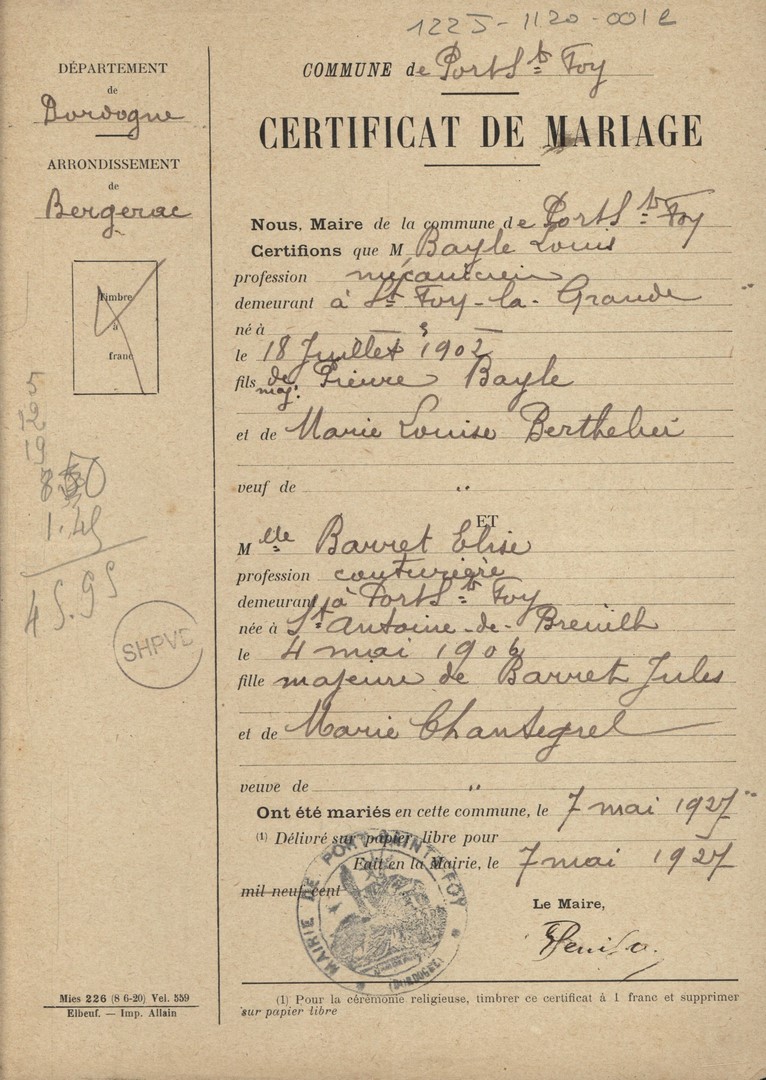 1225-1120-001e
DÉPARTEMENT
de
Dordogne
ARRONDISSEMENT
de
Bergerac
Timbre
à
franc
5
12
19
1.45
45.95
SHPVD
Mies 226 (8 6-20) Vel. 559
Elbeuf. — Imp. Allain
COMMUNE de Port Ste Foy
CERTIFICAT DE MARIAGE
Nous, Maire de la commune de Port Ste Foy
Certifions que M Bayle Louis
profession mécanicien
demeurant à St Foy-la-Grande
né à
le 18 Juillet 1902
fils maj. de Pierre Bayle
et de Marie Louise
veuf de "
ET
M elle Barret Elise
profession couturière
demeurant à Port Ste Foy
née à St Antoine-de-Breuilh
le 4 mai 1906
fille majeure de Barret Jules
et de Marie Chantegrel
veuve de "
Ont été mariés en cette commune, le 7 mai 1927
(1) Délivré sur papier libre pour
Fait en la Mairie, le 7 mai 1927
mil neuf cent
Le Maire,
MAIRIE DE PORT-SAINTE-FOY
(DORDOGNE)
(1) Pour la cérémonie religieuse, timbrer ce certificat à 1 franc et supprimer
sur papier libre